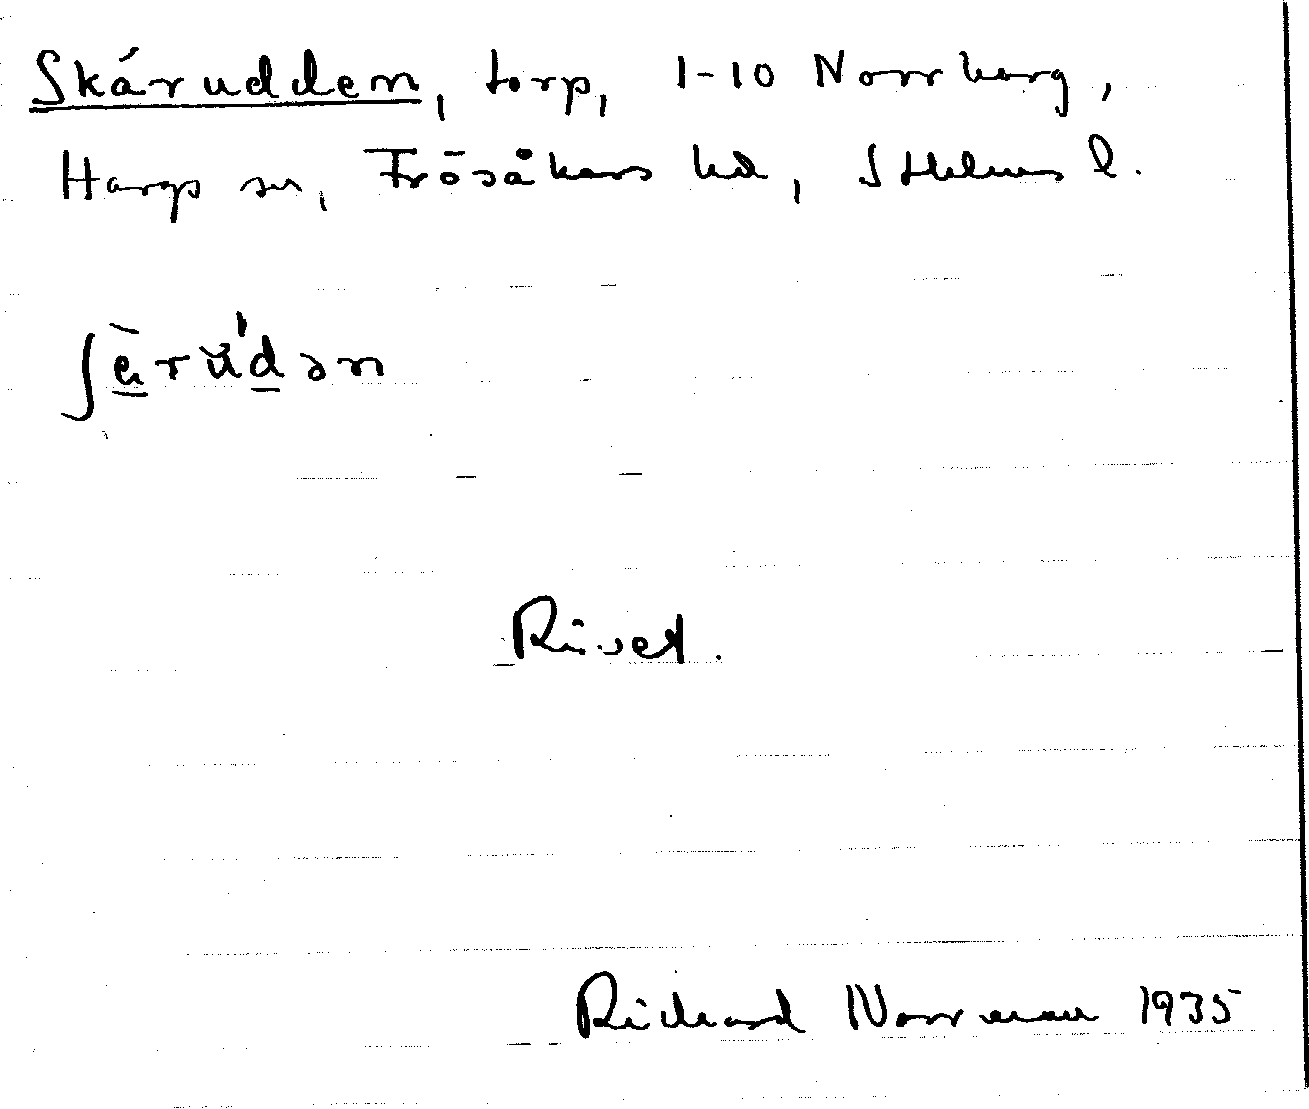 Skäruddem, torp, 1-10 Norrharg,
Hargs sn, Frösåkers hd, Sthlms l.
ʃæ̀rŭ'dən
Rivet.
Richard Norrman 1935